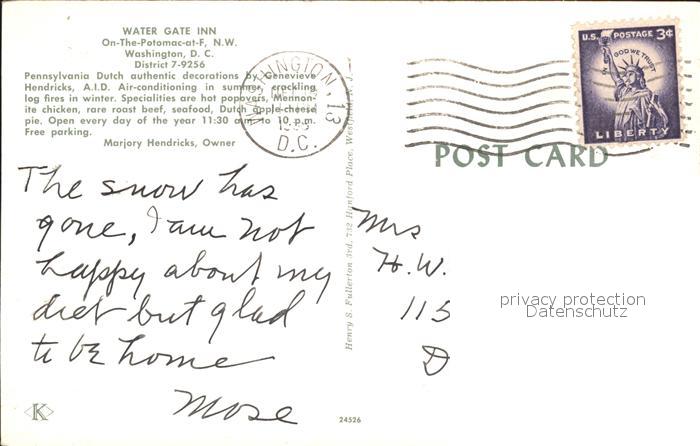 WATER GATE INN
On-The-Potomac-at-F, N.W.
Washington, D. C.
District 7-9256
Pennsylvania Dutch authentic decorations by Genevieve
Hendricks, A.I.D. Air-conditioning in summer, crackling
log fires in winter. Specialities are hot popovers, Mennon-
ite chicken, rare roast beef, seafood, Dutch apple-cheese
pie. Open every day of the year 11:30 a.m. to 10 p.m.
Free parking.
Marjory Hendricks, Owner
WASHINGTON, 13
D.C.
U.S. POSTAGE 3¢
IN GOD WE TRUST
LIBERTY
POST CARD
The snow has
gone, I am not
happy about my
diet but glad
to be home
Mose
Henry S. Fullerton 3rd, 732 Hanford Place, Westfield, N. J.
Mrs
H. W.
115
D
privacy protection
Datenschutz
K
24526